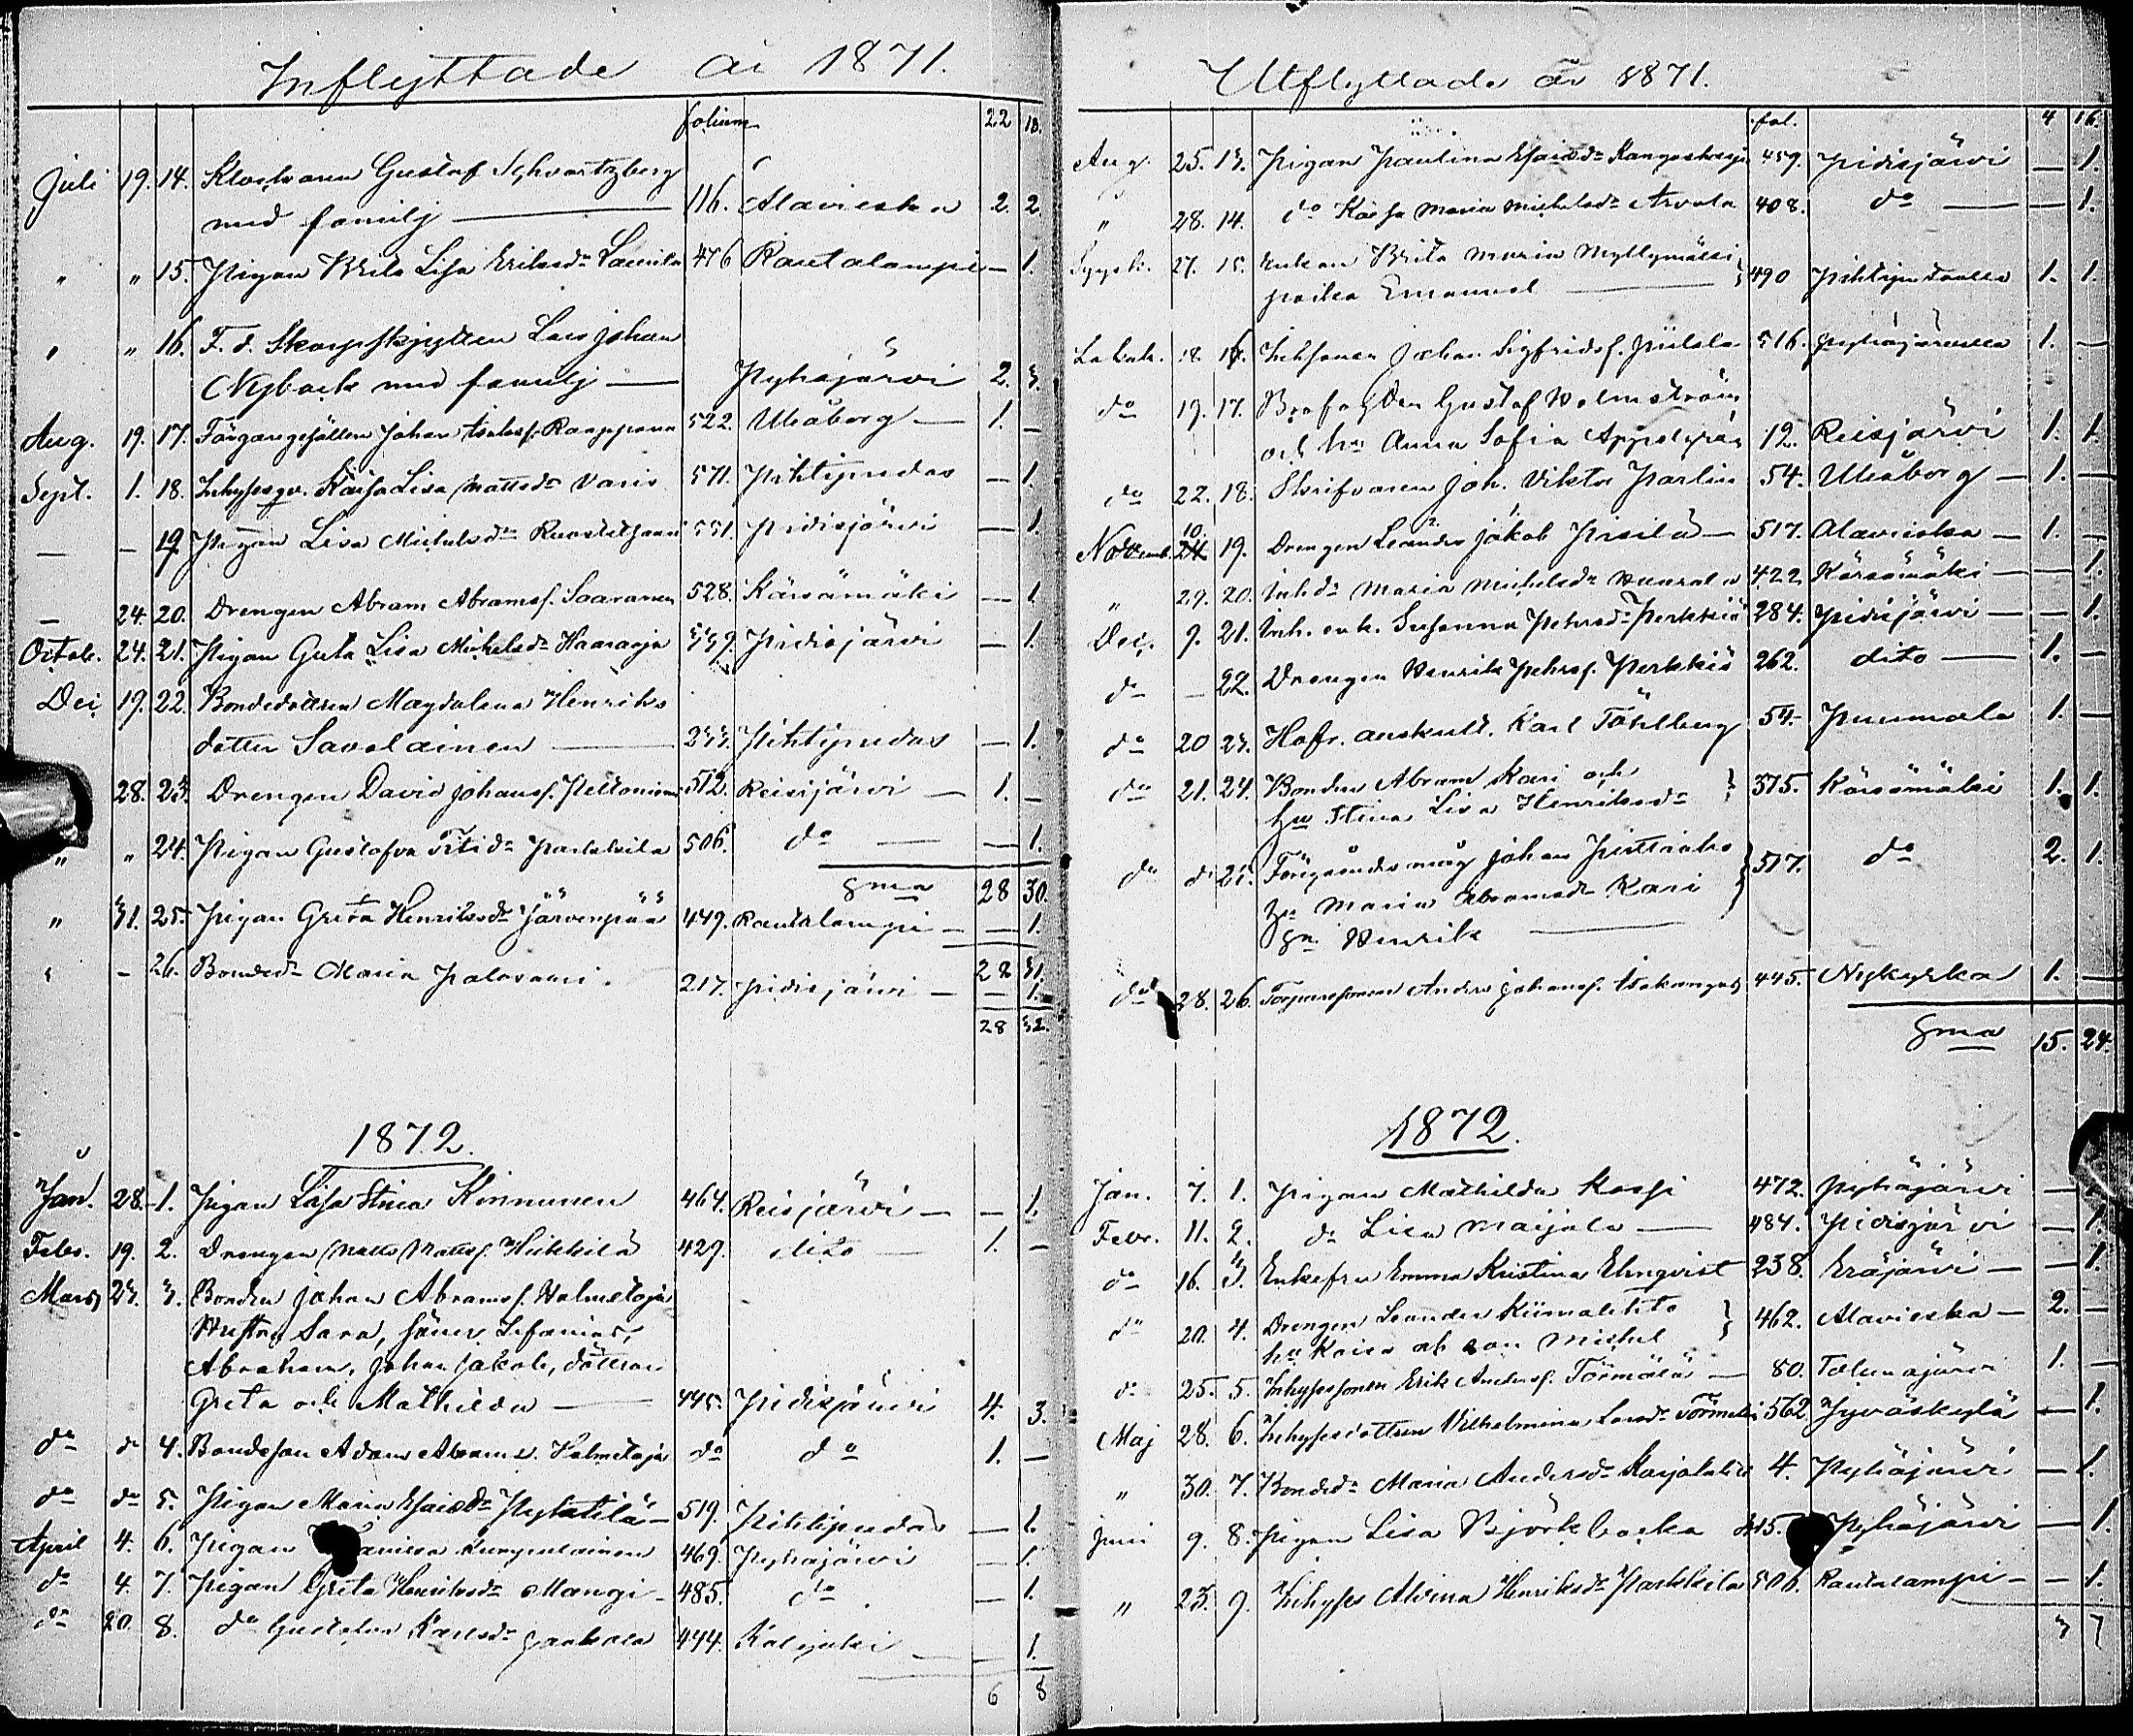 Inflyttade år 1871.
folium 22 18.
Juli 19. 14. Klockaren Gustaf Schvartzberg
med familj — 116. Alavieska 2. 2.
" " 15. Pigan Brita Lisa Eriksdr Laurila 476 Rautalampi — 1.
" " 16. F. d. Skarpskytten Lars Johan
Nyback med familj — Pyhäjärvi 2. 3.
Aug. 19. 17. Färgaregesällen Johan Raappana 522. Uleåborg — 1. —
Sept. 1. 18. Inhyseqv. Kaisa Lisa Mattsdr Varis 571. Pihtipudas — 1.
— — 19. Pigan Lisa Michelsdr 551. Pidisjärvi — 1.
— 24. 20. Drengen Abram Abramsf. Saaranen 528. Kärsämäki — 1.
Octob. 24. 21. Pigan Greta Lisa Michelsdr Haaraoja 559. Pidisjärvi — 1.
Dec. 19. 22. Bondedottren Magdalena Henriks
dotter Savolainen — 255. Pihtipudas — 1.
28. 23. Drengen David Johansf. Peltoniemi 512. Reisjärvi — 1. —
" " 24. Pigan Gustafva Parkkila 506. do — — 1.
Sma 28 30.
" 31. 25. Pigan Greta Henriksdr Järvenpää 449. Rautalampi — — 1.
28 31.
" — 26. Bondedr Maria Palosaari. 217. Pidisjärvi — — 1.
28 32.
1872.
Jan. 28. 1. Pigan Lisa Stina Kinnunen 464. Reisjärvi — — 1.
Febr. 19. 2. Drengen Matts Mattsf. Hikkilä 429. dito — 1. —
Mars 23. 3. Bonden Johan Abramsf. Halmetoja
Hustru Sara, söner Sefanias,
Abraham, Johan Jakob, döttrar
Greta och Mathilda — 445. Pidisjärvi 4. 3.
do do 4. Bondeson Adam Abrams. Halmetoja do do 1. —
do do 5. Pigan Maria Esaiædr 519. Pihtipudas — 1.
April 4. 6. Pigan Kumpulainen 469. Pyhäjärvi — 1.
do 4. 7. Pigan Greta Henriksdr Mangi — 485. do — 1.
do 20. 8. do Gustafva Karlsdr 494. Kalajoki — 1.
6 8
Utflyttade år 1871.
fol. 4 16.
Aug. 25. 13. Pigan Paulina Esaiædr 459. Pidisjärvi — 1.
" 28. 14. do Kaisa Maria Michelsdr Arvola 408. do — — 1.
27. 15. Enkan Brita Maria Myllymäki
poika Emanuel — 490 Pihtiputaalla 1. 1.
Lokak. 18. 16. Johan Sigfridsf. 516. Pyhäjärvellä 1. —
do 19. 17. Gustaf Holmström
och hu Anna Sofia Appelgren 12. Reisjärvi 1. 1.
do 22. 18. Skrifvaren Joh. Viktor Parlin 54. Uleåborg — 1. —
Novemb. 10. 19. Drengen Leander Jakob Pirilä — 517. Alavieska — 1. —
" 29. 20. Inhdr Maria Michelsdr 422. Kärsämäki — — 1.
Dec. 9. 21. Inh. enk. Susanna Pehrsdr Perkkiö 284. Pidisjärvi — — 1.
do — 22. Drengen Henrik Pehrsf. Perkkiö 262. dito — 1. —
do 20 23. Hofr. auskult. Karl Tåhlberg 54. Puumala 1. —
do 21. 24. Bonden Abram Kari och
hu Stina Lisa Henriksdr 315. Kärsämäki 1. 1.
do do 25. Johan
hu Maria Abramsdr Kari
sn Henrik — 517. do 2. 1.
do 28. 26. Torparesonen Anders Johansf. Isokangas 445. Nykyrka 1. —
Sma 15. 24.
1872.
Jan. 7. 1. Pigan Mathilda Kossi 472. Pyhäjärvi —
Febr. 11. 2. do Lisa Maijala — 484. Pidisjärvi — 1.
do 16. 3. Enkefru Emma Kristina Elmqvist 238. Eräjärvi — — 1.
do 20. 4. Drengen Leander Kiimalehto
hu Kaisa ab son Michel 462. Alavieska — 2. —
do 25. 5. Inhysessonen Erik Andersf. Törmälä — 80. Toholampi 1. —
Maj 28. 6. Inhysesdottren Vilhelmina Larsdr 562 Jyväskylä — 1.
" 30. 7. Bondedr Maria Andersdr 4. Pyhäjärvi — 1.
Juni 9. 8. Pigan Lisa Björkbacka 415. Pyhäjärvi — 1.
" 23. 9. Inhyses Alvina Henriksdr Parkkila 506. Rautalampi — — 1.
7